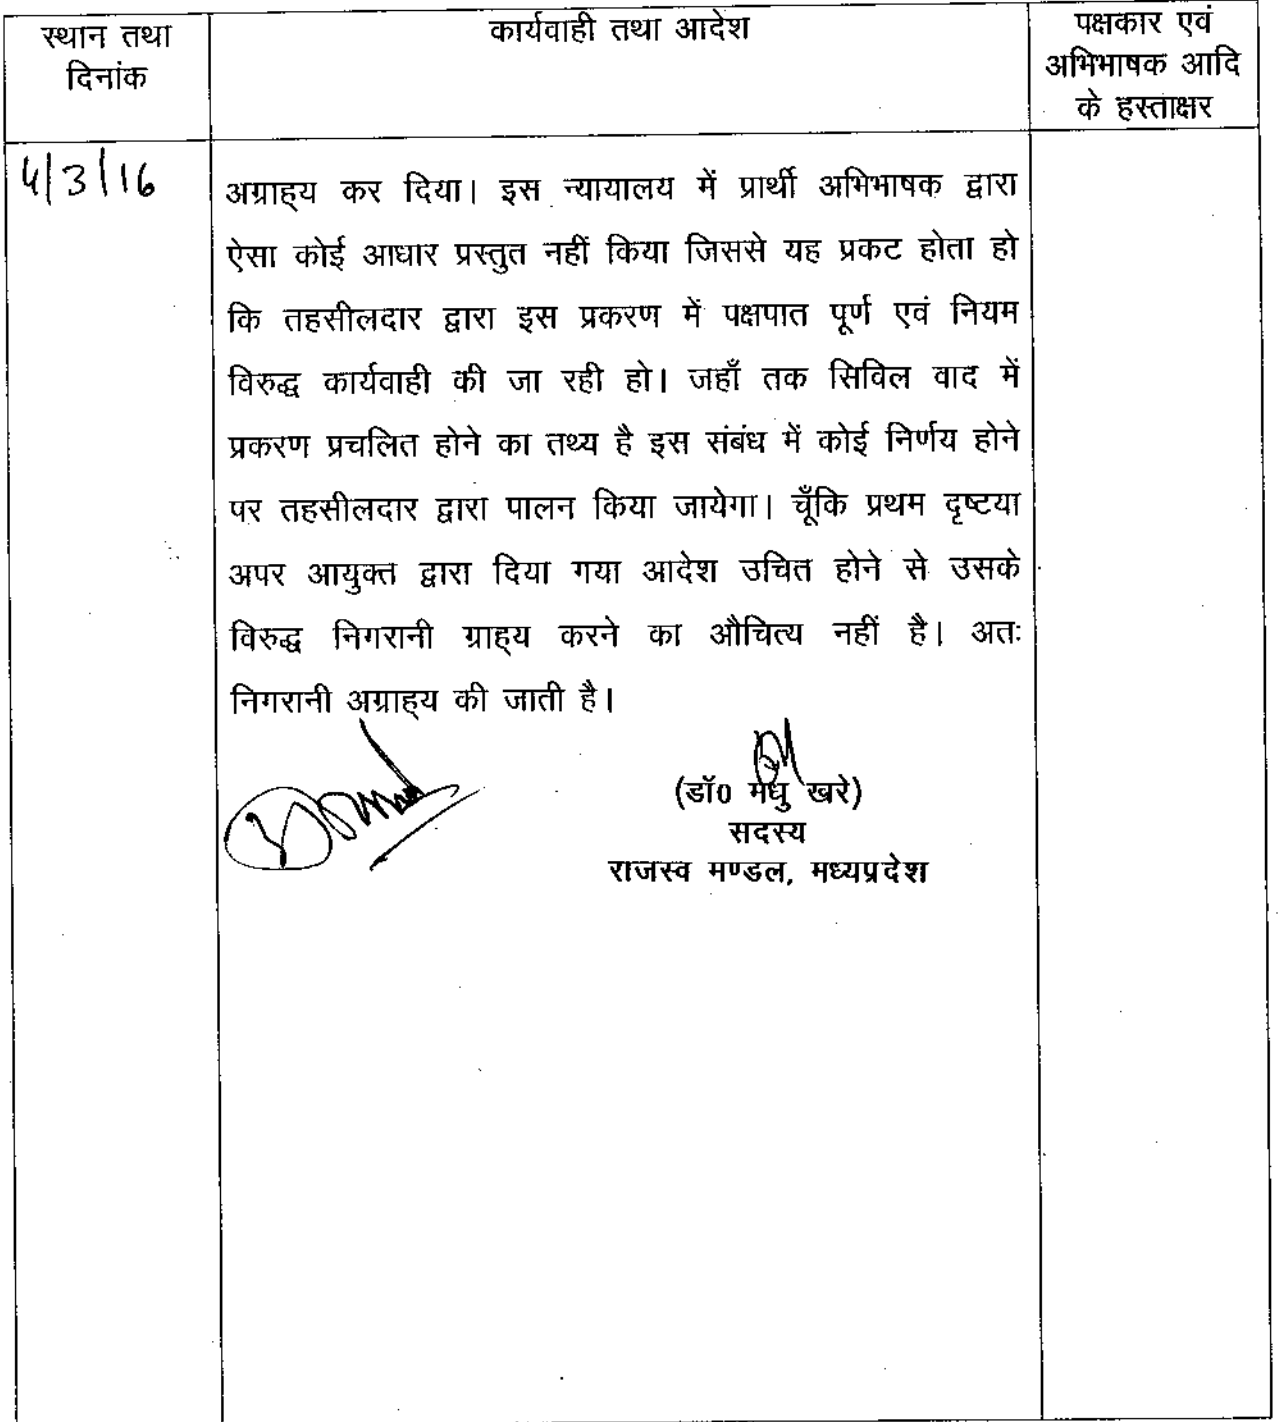 स्थान तथा
दिनांक
कार्यवाही तथा आदेश
पक्षकार एवं
अभिभाषक आदि
के हस्ताक्षर
4/3/16
अग्राह्य कर दिया। इस न्यायालय में प्रार्थी अभिभाषक द्वारा
ऐसा कोई आधार प्रस्तुत नहीं किया जिससे यह प्रकट होता हो
कि तहसीलदार द्वारा इस प्रकरण में पक्षपात पूर्ण एवं नियम
विरुद्ध कार्यवाही की जा रही हो। जहाँ तक सिविल वाद में
प्रकरण प्रचलित होने का तथ्य है इस संबंध में कोई निर्णय होने
पर तहसीलदार द्वारा पालन किया जायेगा। चूँकि प्रथम दृष्टया
अपर आयुक्त द्वारा दिया गया आदेश उचित होने से उसके
विरुद्ध निगरानी ग्राह्य करने का औचित्य नहीं है। अतः
निगरानी अग्राह्य की जाती है।
(डॉ0 मधु खरे)
सदस्य
राजस्व मण्डल, मध्यप्रदेश